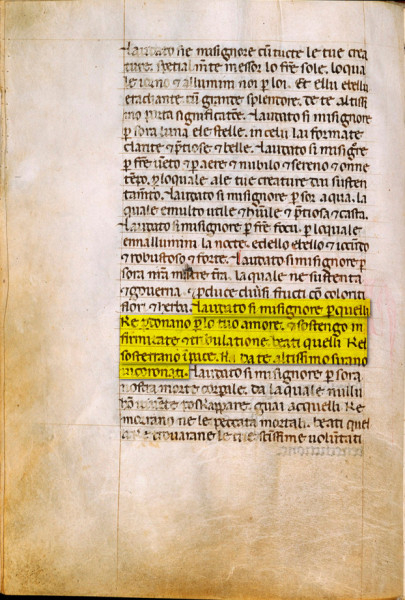 Laudato sie misignore cū tucte le tue crea
ture. spetialm̄te messor lo fr̄e sole. loqua
le iorno ⁊ allumini noi p̱ loi. Et ellu ellellu
eradiante cū grande splendore. de te altissi
mo porta significatōe. Laudato si misignore
p̱ sora luna ele stelle. in celu lai formate
clarite ⁊ p̄tiose ⁊ belle. Laudato si misigr̄e
p̱ fr̄e uēto ⁊ p̱ aere ⁊ nubilo ⁊ sereno ⁊ onne
tēpo. p̱ loquale ale tue creature dai susten
tam̄to. Laudato si misignore p̱ sor aqua. la
quale emulto utile ⁊ hūile ⁊ p̄tiosa ⁊ casta.
Laudato si misignore p̱ fr̄e focu. p̱ loquale
ennallumini la nocte. edello ebello ⁊ iocūdo
⁊ robustoso ⁊ forte. Laudato si misignore p̱
sora nr̄a matre tr̄ra. la quale ne sustenta
⁊ gouerna. ⁊ p̱duce diūsi fructi cō coloriti
flori ⁊ herba. Laudato si misignore p̱ quelli
ke p̱donano p̱ lo tuo amore. ⁊ sostengo in
firmitate ⁊ tribulatione. beati quelli kel
sosterrano ī pace. ka da te altissimo sirano
incoronati. Laudato si misignore p̱ sora
nostra morte corporale. da la quale nullu
hō uiuēte poskappare. guai acquelli ke
morrano ne le peccata mortali. beati quel
li ke trouarane le tue sc̄issime uoluntati